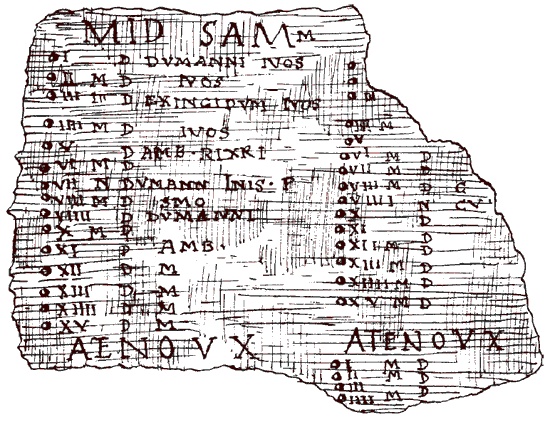 MID SAM M
I D DVMANNI IVOS
II M D IVOS
III D EXINGIDVM IVOS
IIII M D IVOS
V D AMB·RIXRI
VI M D
VII N DVMANN INIS·F
VIII M D SMO
VIIII D DVMANNI
X M D
XI D AMB·
XII D M
XIII D M
XIIII D M
XV D M
ATENOVX
N
IIII M
V
VI M D
VII M D
VIII M D G
VIIII N CV
X D
XI D
XII M D
XIII M D
XIIII M D
XV M D
ATENOVX
I M D
II M D
III D
IIII M D